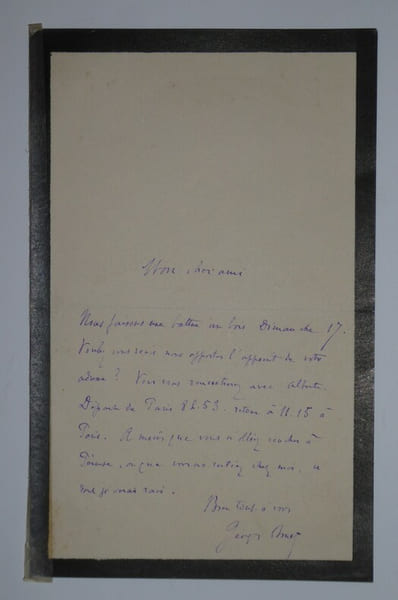 Mon cher ami
Nous faisons une battue au bois Dimanche 17.
Voulez vous nous apporter l'appoint de votre
adresse ? Vous vous rencontrerez avec Alberte.
Départ de Paris 8h.53. retour à 11.15 à
Paris. A moins que vous n'alliez coucher à
, ou que vous ne restiez chez moi, ce
dont je serais ravi.
Bien tout à vous
Georges